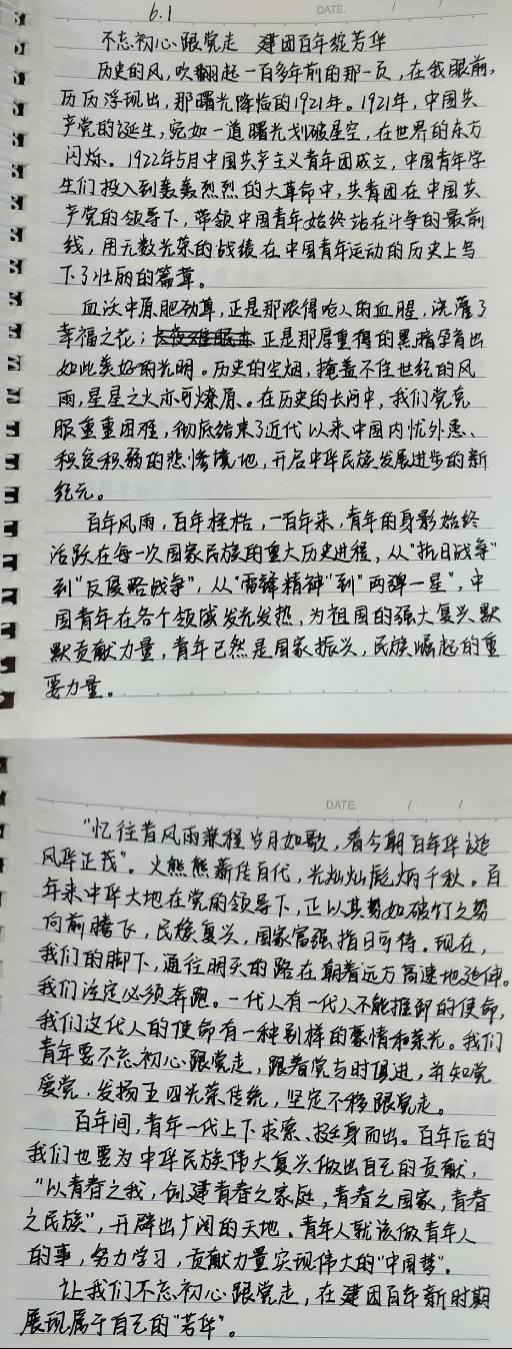 6.1
DATE. / /
不忘初心跟党走 建团百年绽芳华
历史的风,吹翻起一百多年前的那一页,在我眼前,
历历浮现出,那曙光降临的1921年。1921年,中国共
产党的诞生,宛如一道曙光划破星空,在世界的东方
闪烁。1922年5月中国共产主义青年团成立,中国青年学
生们投入到轰轰烈烈的大革命中,共青团在中国共
产党的领导下,带领中国青年始终站在斗争的最前
线,用无数光荣的战绩在中国青年运动的历史上写
下了壮丽的篇章。
血沃中原肥劲草,正是那浓得呛人的血腥,浇灌了
幸福之花;正是那厚重得的黑暗孕育出
如此美好的光明。历史的尘烟,掩盖不住世纪的风
雨,星星之火亦可燎原。在历史的长河中,我们党克
服重重困难,彻底结束了近代以来中国内忧外患、
积贫积弱的悲惨境地,开启中华民族发展进步的新
纪元。
百年风雨,百年桎梏,一百年来,青年的身影始终
活跃在每一次国家民族的重大历史进程,从“抗日战争”
到“反侵略战争”,从“雷锋精神”到“两弹一星”,中
国青年在各个领域发光发热,为祖国的强大复兴默
默贡献力量,青年已然是国家振兴,民族崛起的重
要力量。
DATE. / /
“忆往昔风雨兼程岁月如歌,看今朝百年华诞
风华正茂”。火熊熊薪传百代,光灿灿彪炳千秋。百
年来中华大地在党的领导下,正以其势如破竹之势
向前腾飞,民族复兴,国家富强指日可待。现在,
我们的脚下,通往明天的路在朝着远方高速地延伸。
我们注定必须奔跑。一代人有一代人不能推卸的使命,
我们这代人的使命有一种别样的豪情和荣光。我们
青年要不忘初心跟党走,跟着党与时俱进,并知党
爱党,发扬五四光荣传统,坚定不移跟党走。
百年间,青年一代上下求索、挺身而出。百年后的
我们也要为中华民族伟大复兴做出自己的贡献,
“以青春之我,创建青春之家庭,青春之国家,青春
之民族”,开辟出广阔的天地。青年人就该做青年人
的事,努力学习,贡献力量实现伟大的“中国梦”。
让我们不忘初心跟党走,在建团百年新时期
展现属于自己的“芳华”。